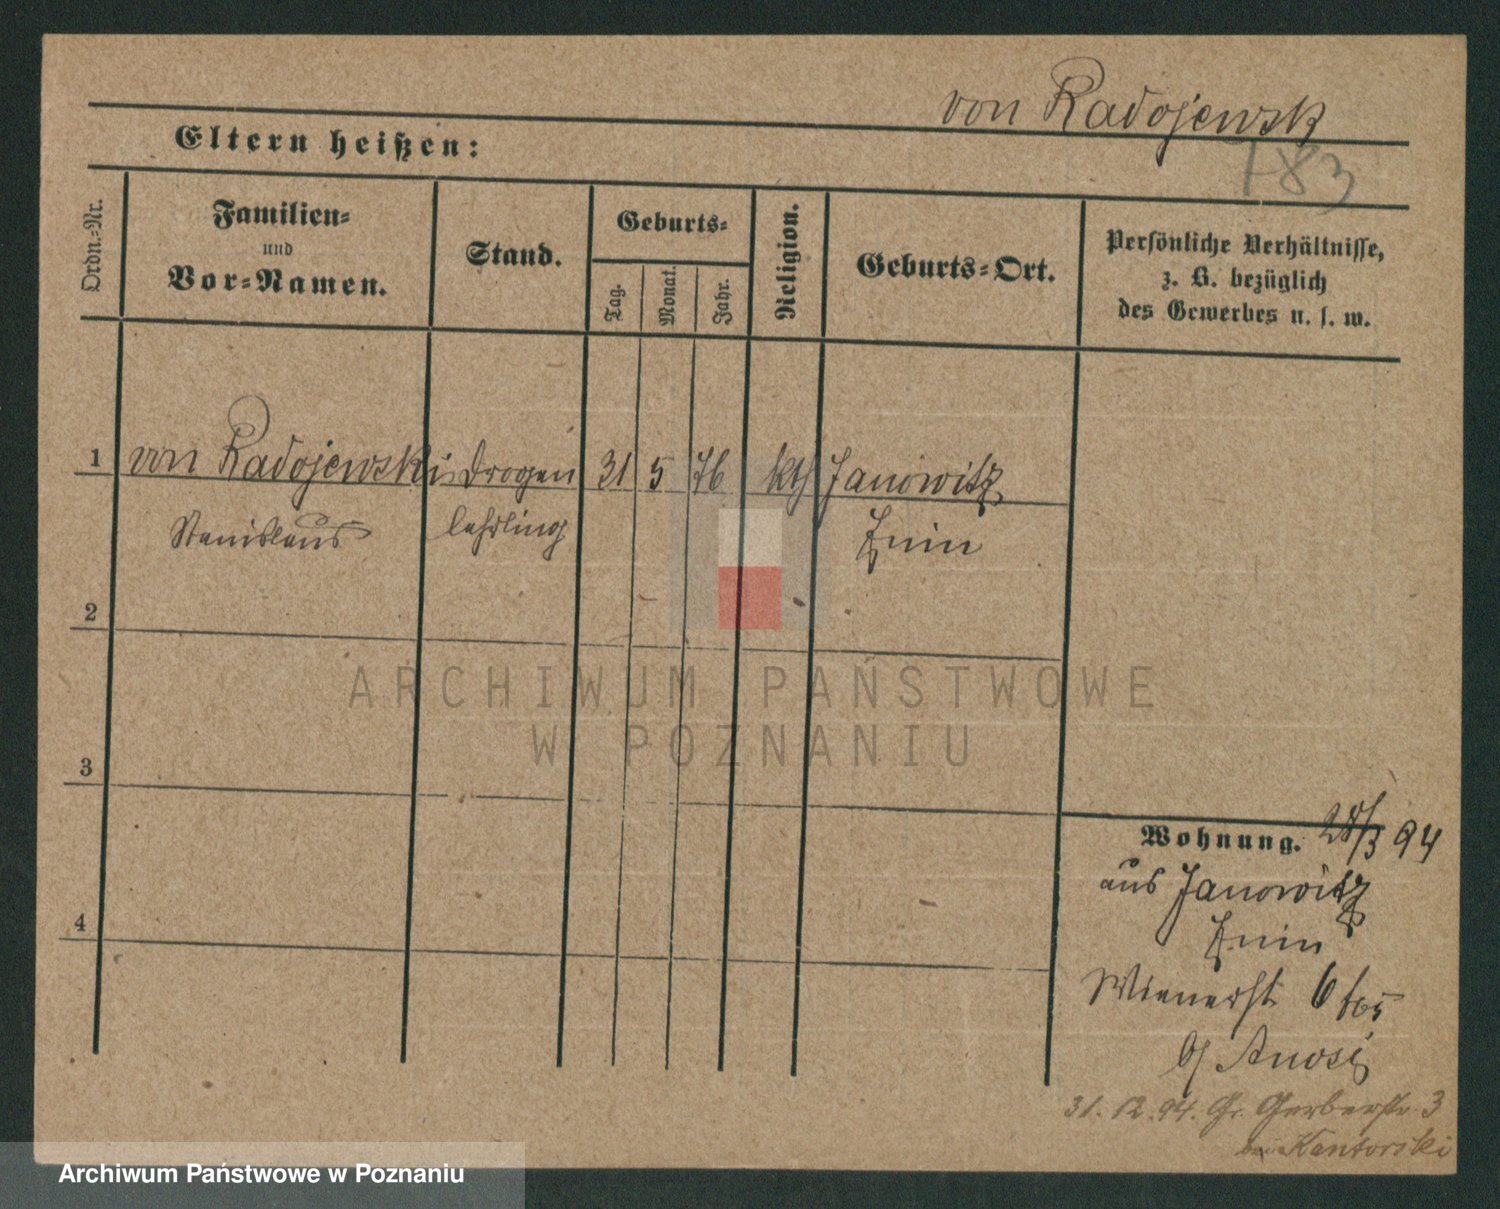 von Radojewsk
783
Eltern heißen:
Ordn.-Nr.
Familien-
und
Vor-Namen.
Stand.
Geburts-
Tag.
Monat.
Jahr.
Religion.
Geburts-Ort.
Persönliche Verhältnisse,
z. B. bezüglich
des Gewerbes u. s. w.
1 von Radojewski Drogen 31 5 76 kth Janowitz
Stanislaus lehrling Znin
2
3
4
Wohnung. 28/3 94
aus Janowitz
Znin
Wienerst 6
31.12.94. Gr. Gerberstr. 3
bei Kantorski
ARCHIWUM PAŃSTWOWE
W POZNANIU
Archiwum Państwowe w Poznaniu